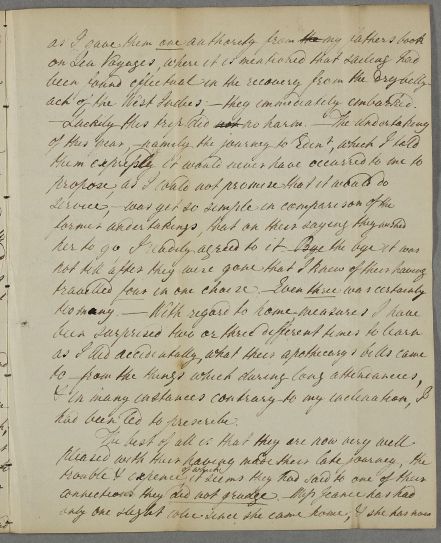 as I gave them one authority from the my Fathers book
on Sea Voyages, where it is mentioned that sailing had
been found effectual in the recovery from the dry belly-
ach of the West Indies – they immediately embarked.
– Luckily this trip did not no harm. – The undertaking
of this year, – namely the journey to Edinr, which I told
them expressly it would never have occurred to me to
propose, as I could not promise that it would do
service, – was yet so simple in comparison of the
former undertakings, that on their saying they wished
her to go I readily agreed to it – the it was
not till after they were gone that I knew of their having
travelled four in one chaise – Even three was certainly
too many. – With regard to home-measures I have
been surprised two or three different times to learn
as I did accidentally, what their apothecary's bills came
to – from the things which during long attendances,
& in many instances contrary to my inclination, I
had been led to prescribe.
The best of all is that they are now very well
pleased with their having made their late journey, the
trouble & expence of which it seems they had said to one of their
connections they did not grudge. Miss Jeanie has had
only one slight colic since she came home, & she has now